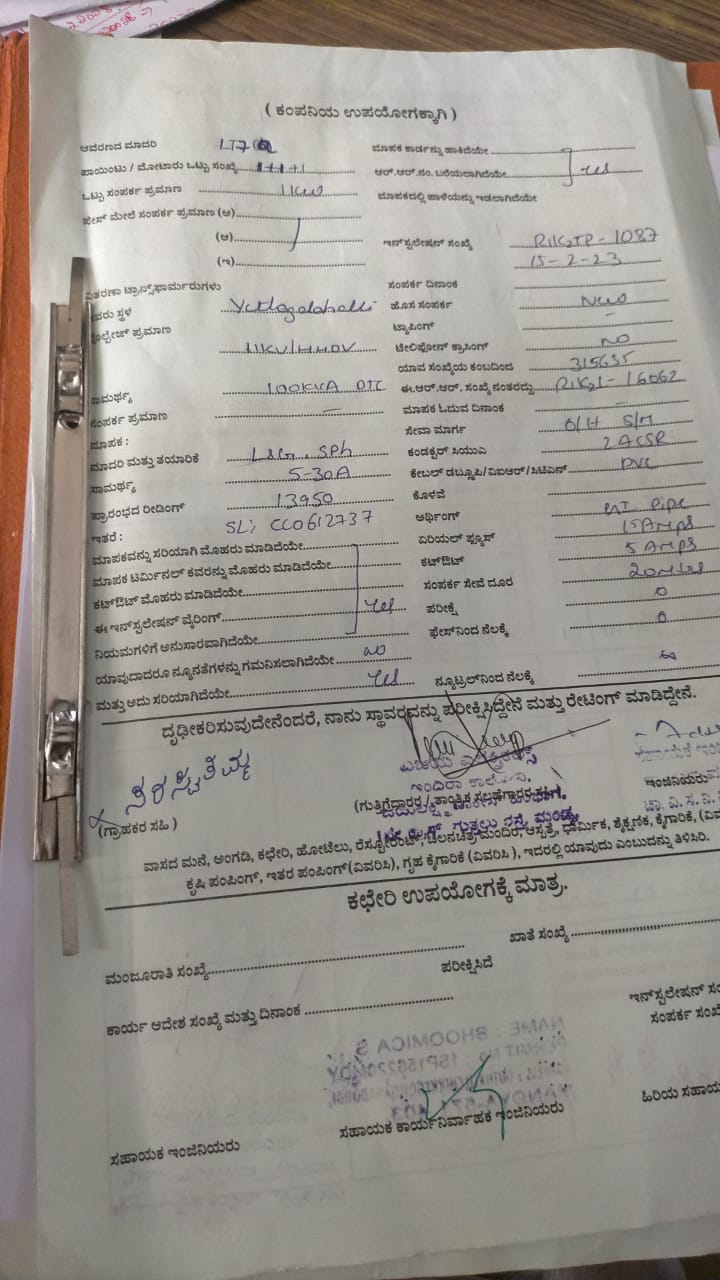 ( ಕಂಪನಿಯ ಉಪಯೋಗಕ್ಕಾಗಿ )
ಆವರಣದ ಮಾದರಿ LT7
ಮಾಪಕ ಕಾರ್ಡನ್ನು ಹಾಕಿದೆಯೇ
ಪಾಯಿಂಟು / ಮೋಟಾರು ಒಟ್ಟು ಸಂಖ್ಯೆ 1+1+1
ಆರ್.ಆರ್.ನಂ. ಬರೆಯಲಾಗಿದೆಯೇ yes
ಒಟ್ಟು ಸಂಪರ್ಕ ಪ್ರಮಾಣ 1KW
ಮಾಪಕದಲ್ಲಿ ಹಾಳೆಯನ್ನು ಇಡಲಾಗಿದೆಯೇ
ಫೇಸ್ ಮೇಲೆ ಸಂಪರ್ಕ ಪ್ರಮಾಣ (ಅ)
(ಆ)
ಇನ್‌ಸ್ಟಲೇಷನ್ ಸಂಖ್ಯೆ RIK2TP - 1087
(ಇ)
15-2-23
ವಿತರಣಾ ಟ್ರಾನ್ಸ್‌ಫಾರ್ಮರುಗಳು
ಸಂಪರ್ಕ ದಿನಾಂಕ
ಸ್ಥಳ
ಹೊಸ ಸಂಪರ್ಕ New
ಪ್ರಮಾಣ 11KV/
ಟ್ಯಾಪಿಂಗ್ -
ಟೆಲಿಫೋನ್ ಕ್ರಾಸಿಂಗ್ NO
ಯಾವ ಸಂಖ್ಯೆಯ ಕಂಬದಿಂದ 315635
ಸಾಮರ್ಥ್ಯ 100KVA DTC
ಈ.ಆರ್.ಆರ್. ಸಂಖ್ಯೆ ನಂತರದ್ದು RIK2L - 16062
ಸಂಪರ್ಕ ಪ್ರಮಾಣ -
ಮಾಪಕ ಓದುವ ದಿನಾಂಕ -
ಮಾಪಕ :
ಸೇವಾ ಮಾರ್ಗ O/H S/M
ಮಾದರಿ ಮತ್ತು ತಯಾರಿಕೆ L&G, SPh
ಕಂಡಕ್ಟರ್ ಸಿಯುಎ 2 ACSR
ಸಾಮರ್ಥ್ಯ 5-30A
ಕೇಬಲ್ ಡಬ್ಲ್ಯೂಪಿ/ವಿಐಆರ್/ಸಿಟಿಎಸ್ PVC
ಪ್ರಾರಂಭದ ರೀಡಿಂಗ್ 13950
ಕೊಳವೆ
ಇತರೆ : SL; CC0612737
ಅರ್ಥಿಂಗ್ GI Pipe
ಮಾಪಕವನ್ನು ಸರಿಯಾಗಿ ಮೊಹರು ಮಾಡಿದೆಯೇ
ಏರಿಯಲ್ ಫ್ಯೂಸ್ 15 Amps
ಮಾಪಕ ಟರ್ಮಿನಲ್ ಕವರನ್ನು ಮೊಹರು ಮಾಡಿದೆಯೇ
ಕಟ್‌ಔಟ್ 5 Amps
ಕಟ್‌ಔಟ್ ಮೊಹರು ಮಾಡಿದೆಯೇ
ಸಂಪರ್ಕ ಸೇವೆ ದೂರ 20
ಈ ಇನ್‌ಸ್ಟಲೇಷನ್ ವೈರಿಂಗ್ yes
ಪರೀಕ್ಷೆ 0
ನಿಯಮಗಳಿಗೆ ಅನುಸಾರವಾಗಿದೆಯೇ
ಫೇಸ್‌ನಿಂದ ನೆಲಕ್ಕೆ 0
ಯಾವುದಾದರೂ ನ್ಯೂನತೆಗಳನ್ನು ಗಮನಿಸಲಾಗಿದೆಯೇ no
ಮತ್ತು ಅದು ಸರಿಯಾಗಿದೆಯೇ yes
ನ್ಯೂಟ್ರಲ್‌ನಿಂದ ನೆಲಕ್ಕೆ
ದೃಢೀಕರಿಸುವುದೇನೆಂದರೆ, ನಾನು ಸ್ಥಾವರವನ್ನು ಪರೀಕ್ಷಿಸಿದ್ದೇನೆ ಮತ್ತು ರೇಟಿಂಗ್ ಮಾಡಿದ್ದೇನೆ.
(ಗ್ರಾಹಕರ ಸಹಿ )
(ಗುತ್ತಿಗೆದಾರರ / ತಾಂತ್ರಿಕ ಸಲಹೆಗಾರರ ಸಹಿ)
ಇಂಜಿನಿಯರು
ವಾಸದ ಮನೆ, ಅಂಗಡಿ, ಕಛೇರಿ, ಹೋಟೆಲು, ರೆಸ್ಟೋರೆಂಟ್, ಚಲನಚಿತ್ರ ಮಂದಿರ, ಆಸ್ಪತ್ರೆ, ಧಾರ್ಮಿಕ, ಶೈಕ್ಷಣಿಕ, ಕೈಗಾರಿಕೆ,
ಕೃಷಿ ಪಂಪಿಂಗ್, ಇತರ ಪಂಪಿಂಗ್(ವಿವರಿಸಿ), ಗೃಹ ಕೈಗಾರಿಕೆ (ವಿವರಿಸಿ ), ಇದರಲ್ಲಿ ಯಾವುದು ಎಂಬುದನ್ನು ತಿಳಿಸಿರಿ.
ಕಛೇರಿ ಉಪಯೋಗಕ್ಕೆ ಮಾತ್ರ.
ಮಂಜೂರಾತಿ ಸಂಖ್ಯೆ
ಖಾತೆ ಸಂಖ್ಯೆ
ಪರೀಕ್ಷಿಸಿದೆ
ಕಾರ್ಯ ಆದೇಶ ಸಂಖ್ಯೆ ಮತ್ತು ದಿನಾಂಕ
ಇನ್‌ಸ್ಟಲೇಷನ್
ಸಂಪರ್ಕ
ಸಹಾಯಕ ಇಂಜಿನಿಯರು
ಸಹಾಯಕ ಕಾರ್ಯನಿರ್ವಾಹಕ ಇಂಜಿನಿಯರು
ಹಿರಿಯ